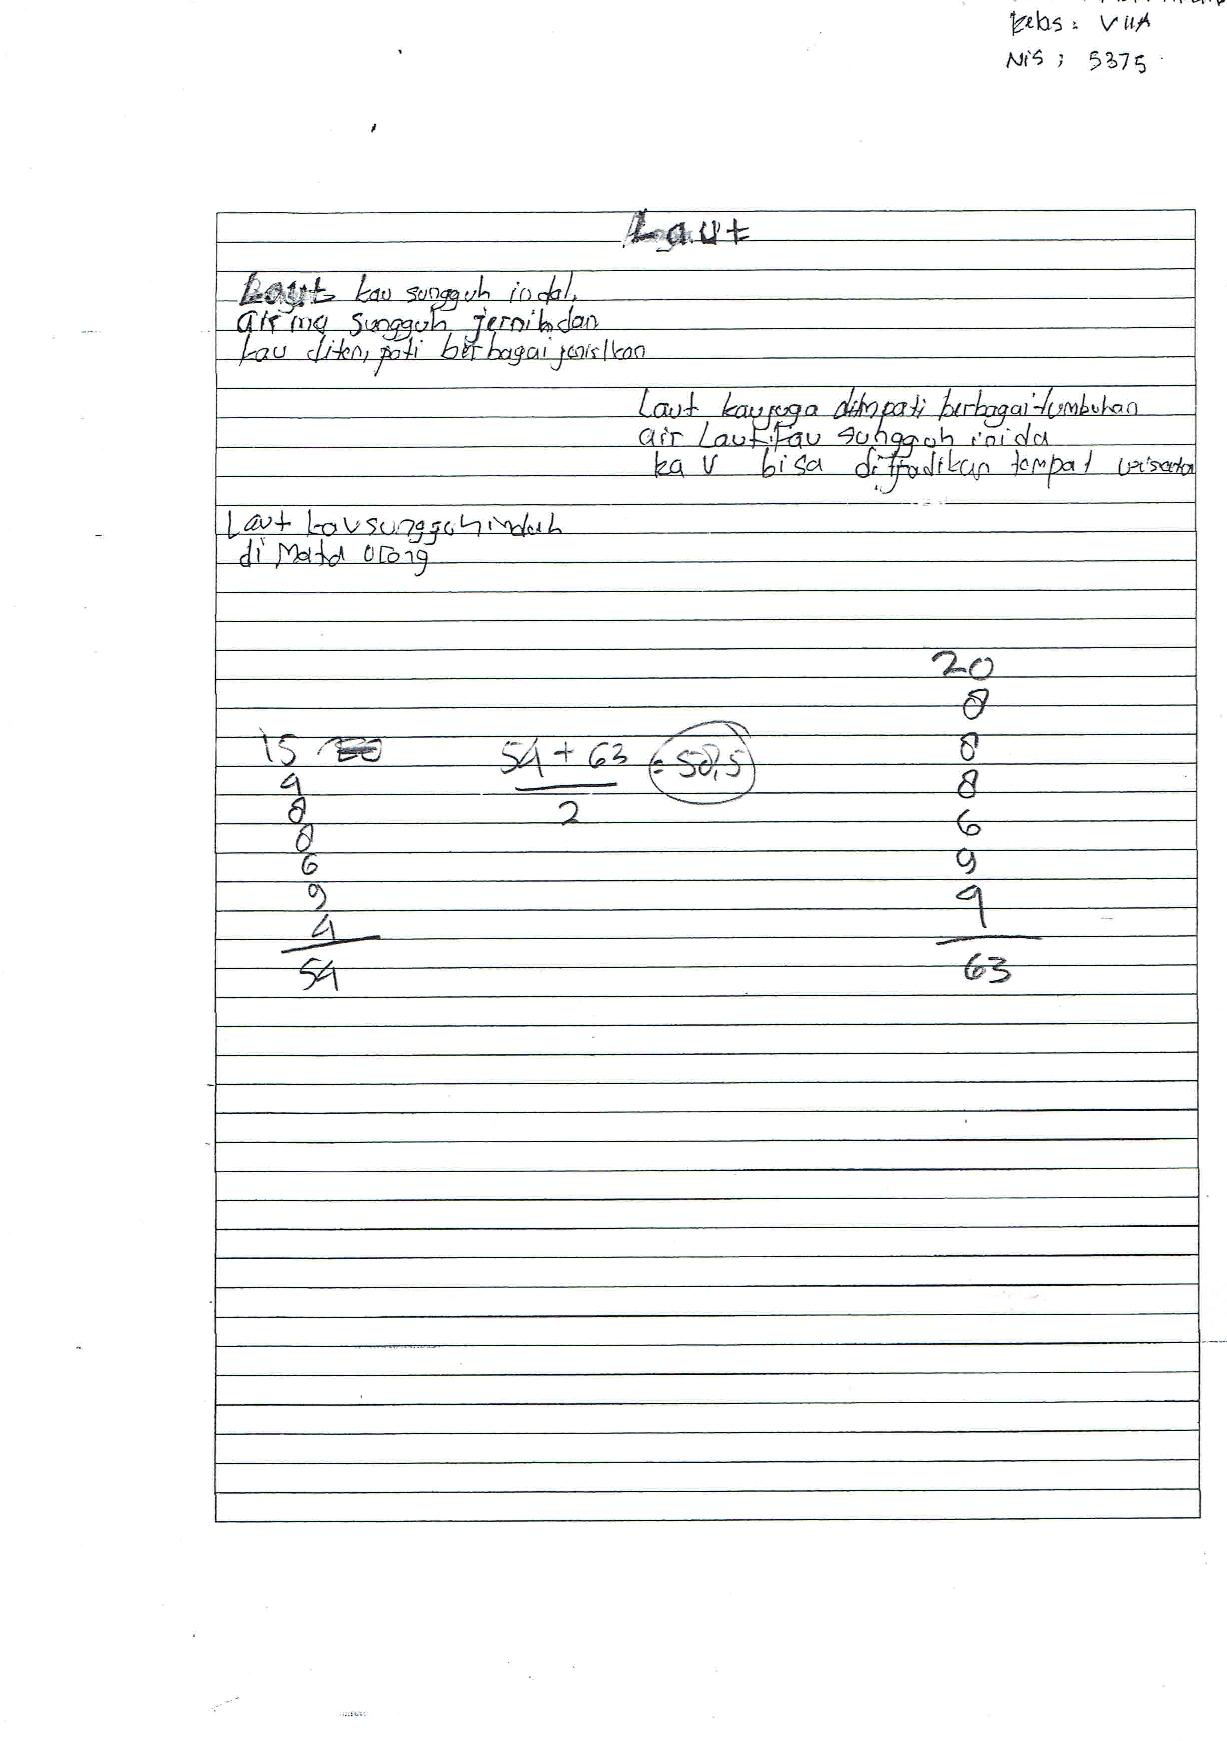 Kelas : VIIA
Nis ; 5375
Laut
Laut kau sungguh indah
airnya sungguh jernih dan
kau ditempati berbagai jenis Ikan
Laut kau juga ditmpati berbagai tumbuhan
air Laut kau sungguh inida
kau bisa ditjadikan tempat wisata
Laut kau sungguh indah
di Mata orang
20
8
8
8
6
9
4
63
15
4
8
8
6
9
4
54
54 + 63 = 58,5
2